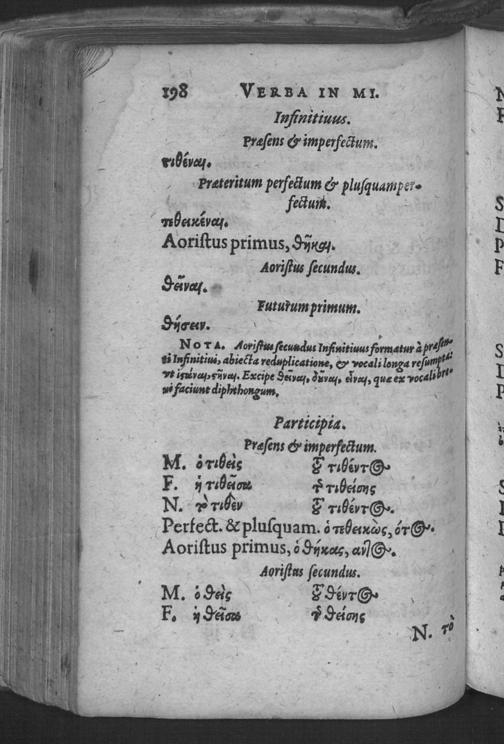 198 VERBA IN MI.
Infinitiuus.
Præsens & imperfectum.
τιθέναι.
Præteritum perfectum & plusquamper-
fectum.
τεθεικέναι.
Aoristus primus, θῆκαι.
Aoristus secundus.
θεῖναι.
Futurum primum.
θήσειν.
NOTA. Aoristus secundus Infinitiuus formatur à præsen-
ti Infinitiui, abiecta reduplicatione, & vocali longa resumpta:
vt ἱστάναι, στῆναι. Excipe θεῖναι, δοῦναι, εἶναι, quæ ex vocali bre-
ui faciunt diphthongum.
Participia.
Præsens & imperfectum.
M. ὁ τιθεὶς τοῦ τιθέντος
F. ἡ τιθεῖσα τῆς τιθείσης
N. τὸ τιθὲν τοῦ τιθέντος.
Perfect. & plusquam. ὁ τεθεικὼς, ότος.
Aoristus primus, ὁ θήκας, αντος.
Aoristus secundus.
M. ὁ θεὶς τοῦ θέντος
F. ἡ θεῖσα τῆς θείσης
N. τὸ